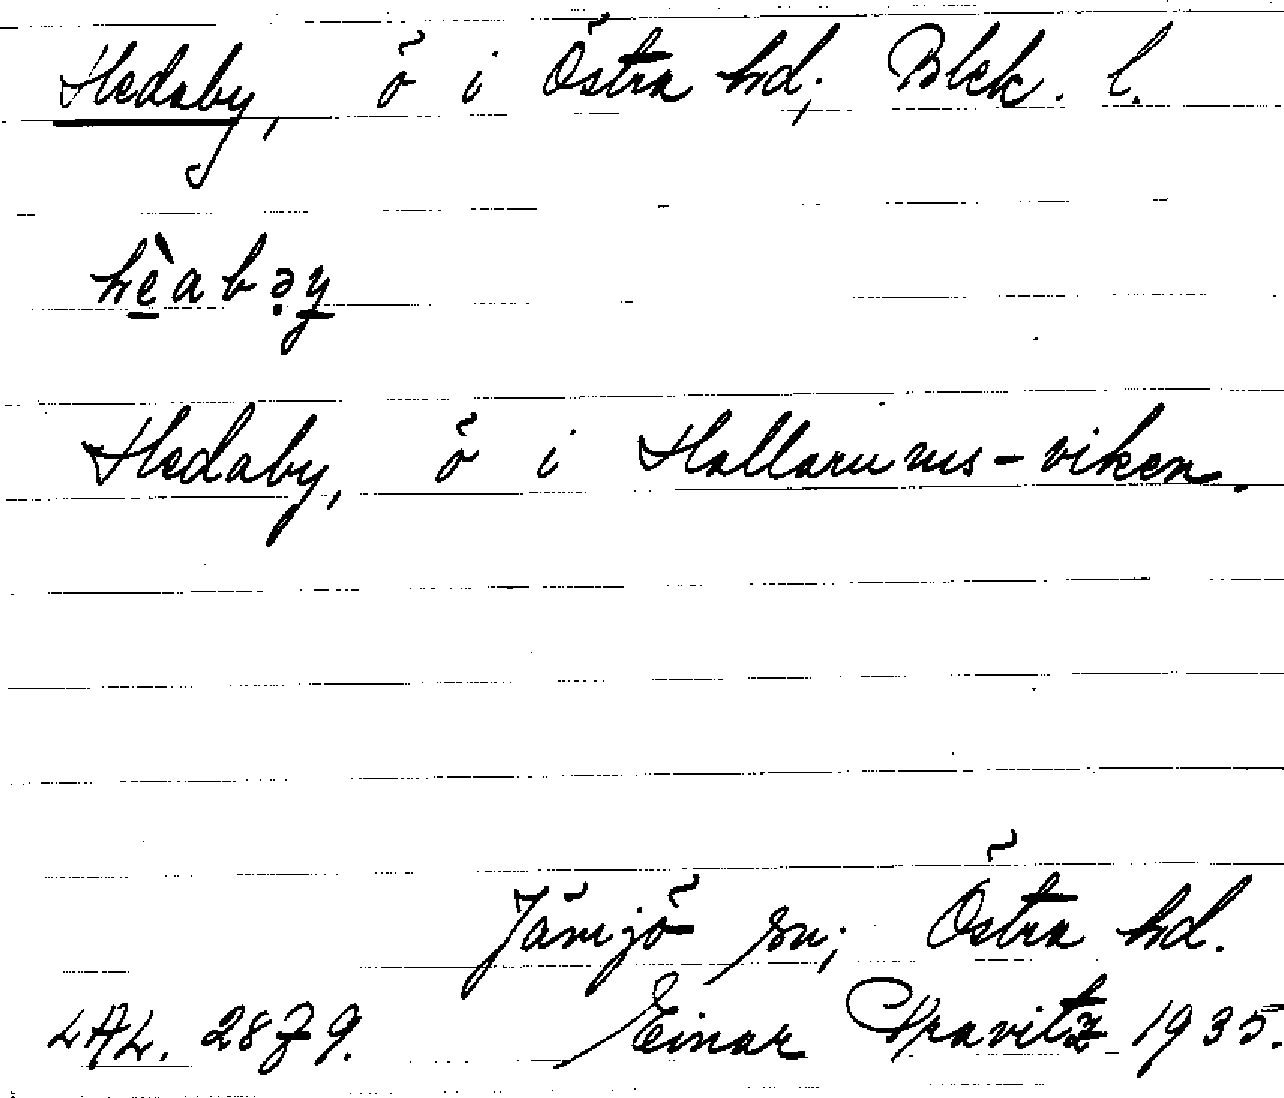 Hedaby, ö i Östra hd; Blek. l.
hèabəy
Hedaby, ö i Hallarums-viken.
Jämjö sn; Östra hd.
LAL. 2879. Einar Cravitz 1935.